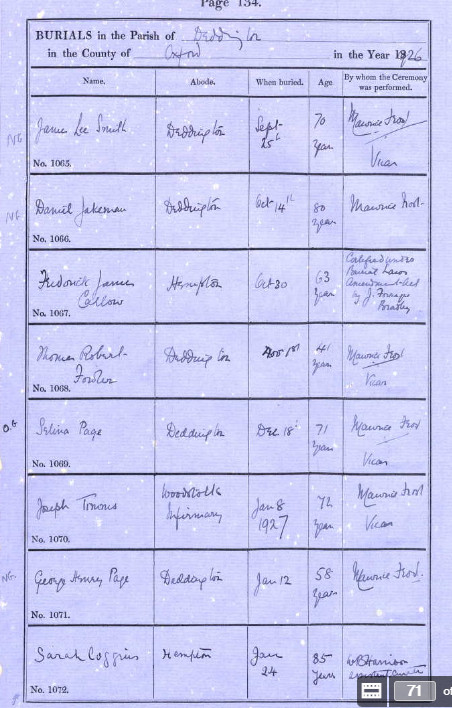 Page 134.
BURIALS in the Parish of Deddington
in the County of Oxford in the Year 1926
Name. Abode. When buried. Age By whom the Ceremony was performed.
NG James Lee Smith Deddington Sept 25th 70 years Maurice Frost Vicar
No. 1065.
NG Daniel Jakeman Deddington Oct 14th 80 years Maurice Frost
No. 1066.
Frederick James Callow Hempton Oct 30 63 years Certified under Burial Laws Amendment Act by J. Bradley
No. 1067.
Thomas Robert Fowler Deddington Nov 41 years Maurice Frost Vicar
No. 1068.
O.G Selina Page Deddington Dec 18 71 years Maurice Frost Vicar
No. 1069.
Joseph Timms Woodstock Infirmary Jan 8 1927 72 years Maurice Frost Vicar
No. 1070.
NG. George Henry Page Deddington Jan 12 58 years Maurice Frost.
No. 1071.
Sarah Coggins Hempton Jan 24 85 years W B Harrison
No. 1072.
71 of